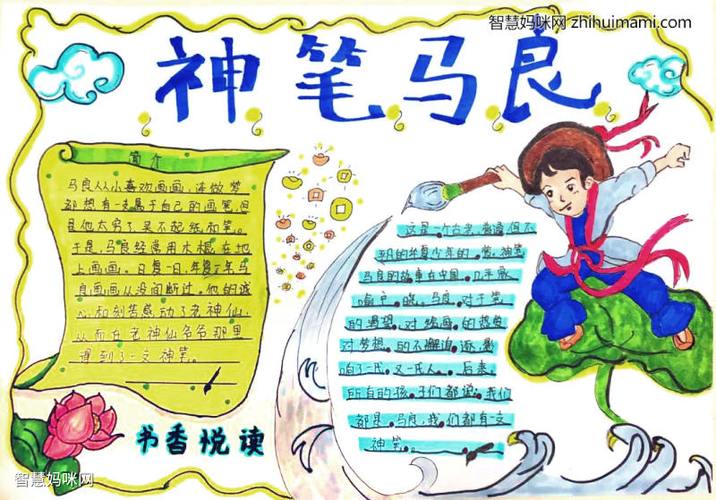 智慧妈咪网 zhihuimami.com
神笔马良
简介
马良从小喜欢画画,连做梦
都想有一支属于自己的画笔,但
是他太穷了,买不起纸和笔。
于是,马良经常用木棍在地
上画画。日复一日,年复一年,马
良画画从没间断过,他的诚
心和刻苦感动了老神仙,
从而在老神仙爷爷那里
得到了一支神笔。
这是一个古老,普通但不
的故事在中国
喻户晓,马良对于笔
的渴望,对绘画的热爱
对梦想的不懈追逐,影
响了一代又一代人。后来,
所有的孩子们都说:我们
都是马良,我们都有一支
神笔。
书香悦读
智慧妈咪网